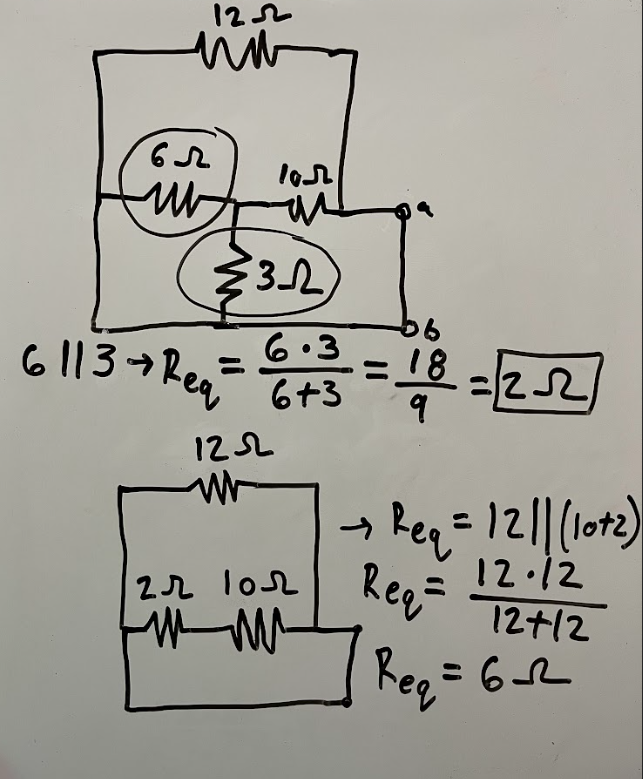 12 Ω
6 Ω
10 Ω
a
3 Ω
b
6 || 3 → Req = 6 · 3 / 6+3 = 18 / 9 = 2 Ω
12 Ω
→ Req = 12 || (10+2)
2 Ω 10 Ω
Req = 12 · 12 / 12+12
Req = 6 Ω